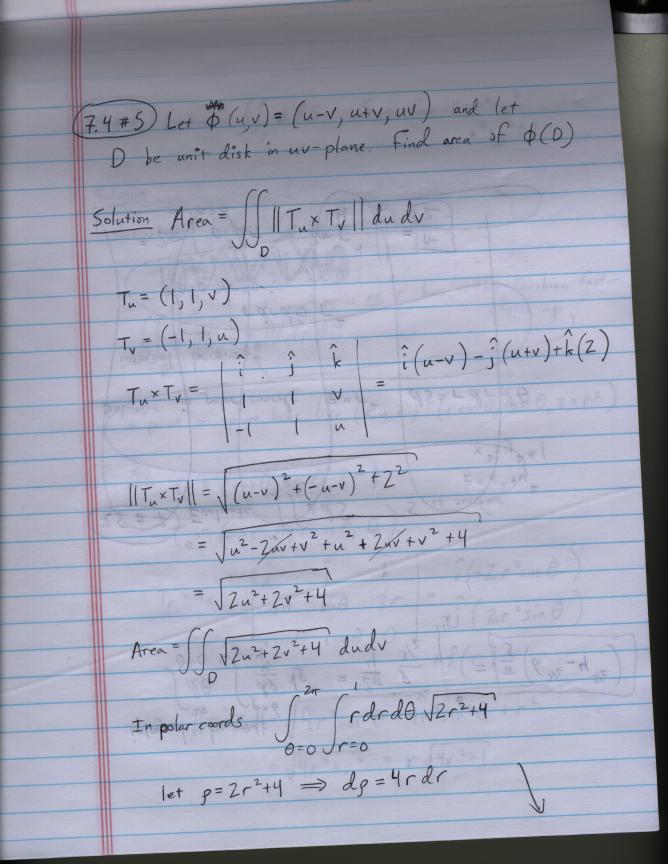 7.4 #5 Let Φ(u,v) = (u-v, u+v, uv) and let
D be unit disk in uv-plane. Find area of φ(D)
Solution Area = ∬_D ||T_u × T_v|| du dv
T_u = (1, 1, v)
T_v = (-1, 1, u)
T_u × T_v = | î ĵ k̂ | = î(u-v) - ĵ(u+v) + k̂(2)
| 1 1 v |
| -1 1 u |
||T_u × T_v|| = √((u-v)² + (-u-v)² + 2²)
= √(u² - 2uv + v² + u² + 2uv + v² + 4)
= √(2u² + 2v² + 4)
Area = ∬_D √(2u² + 2v² + 4) du dv
In polar coords ∫_{θ=0}^{2π} ∫_{r=0}^{1} r dr dθ √(2r² + 4)
let ρ = 2r² + 4 ⟹ dρ = 4r dr ↘